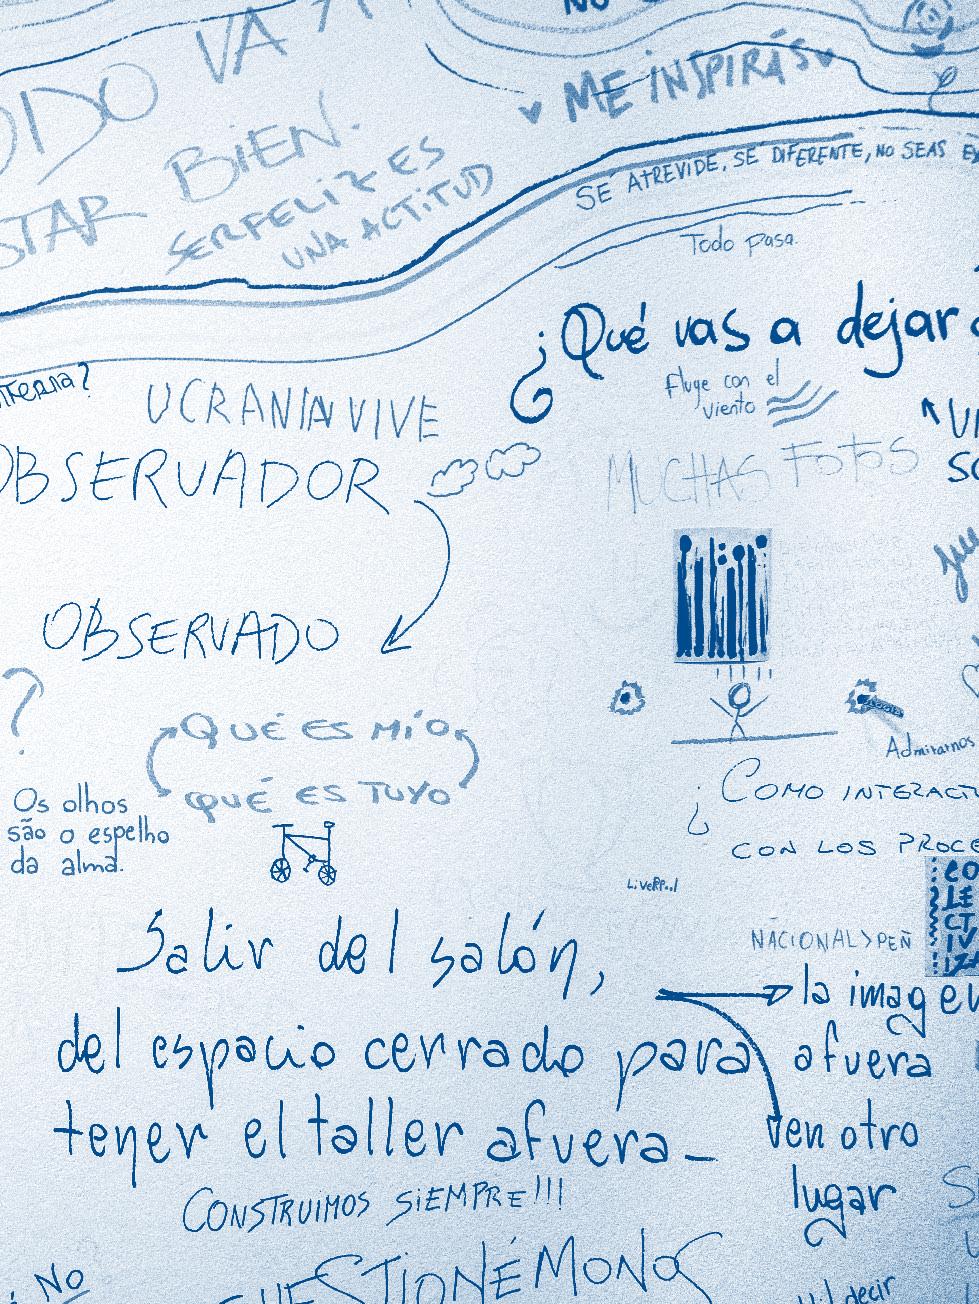 NO
VA A
ODO
ME INSPIRÁS
BIEN.
STAR
SER FELIZ ES
UNA ACTITUD
SÉ ATREVIDE, SÉ DIFERENTE, NO SEAS
Todo pasa.
¿Qué vas a dejar
UCRANIA VIVE
Fluye con el
viento
OBSERVADOR
MUCHAS FOTOS
OBSERVADO
?
QUÉ ES MÍO
QUÉ ES TUYO
Admirarnos
Os olhos
são o espelho
da alma.
¿COMO INTERACTU
CON LOS PROCE
CO
LE
CT
IV
IZA
NACIONAL>PEÑ
Salir del salón,
del espacio cerrado para
tener el taller afuera_
la imagen
afuera
en otro
lugar
CONSTRUIMOS SIEMPRE!!!
UESTIONÉMONOS
NO
decir